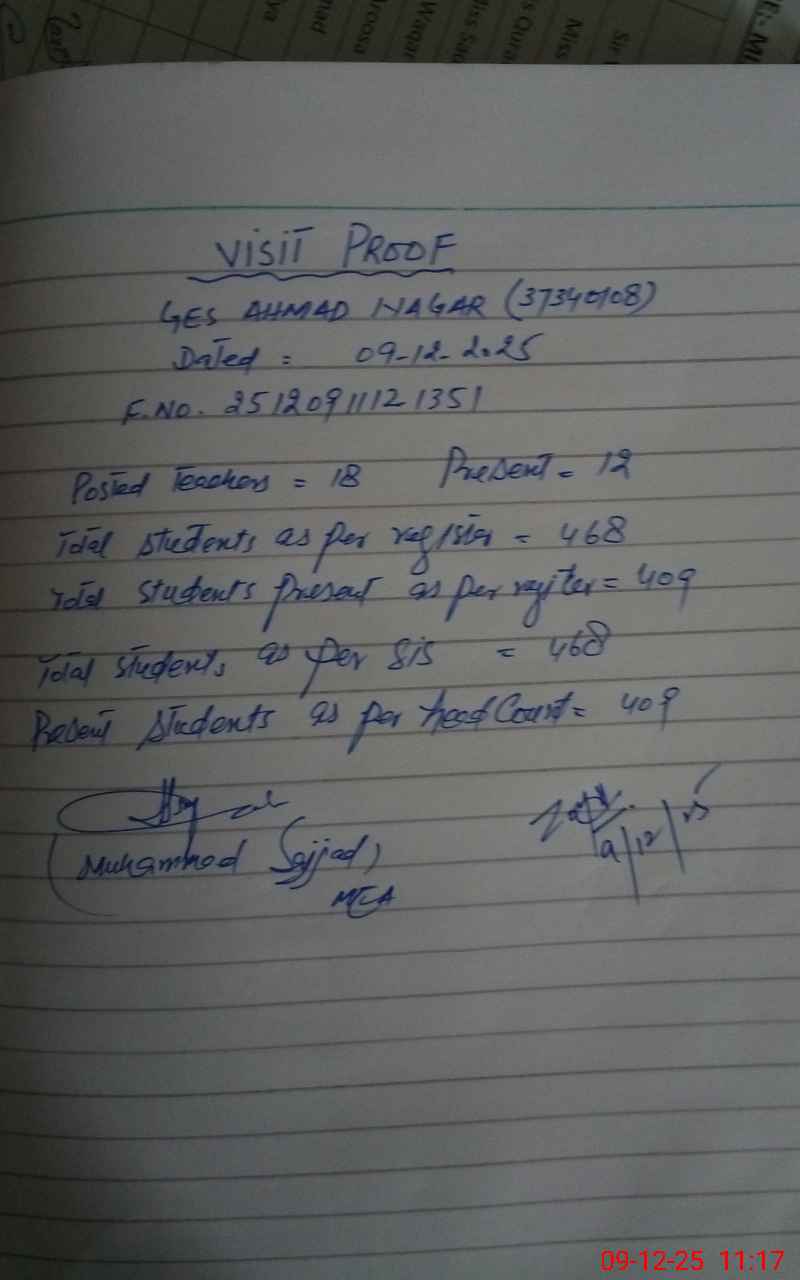 Miss
Sir
Waqar
Aroosa
VISIT PROOF
GES AHMAD NAGAR (37340108)
Dated = 09-12-2025
F.NO. 25120911121351
Posted Teachers = 18 Present = 12
Total students as per register = 468
Total students present as per regiter = 409
Total students as per SIS = 468
Present students as per head Count = 409
(Muhammad Sajjad)
MEA
9/12/25
09-12-25 11:17